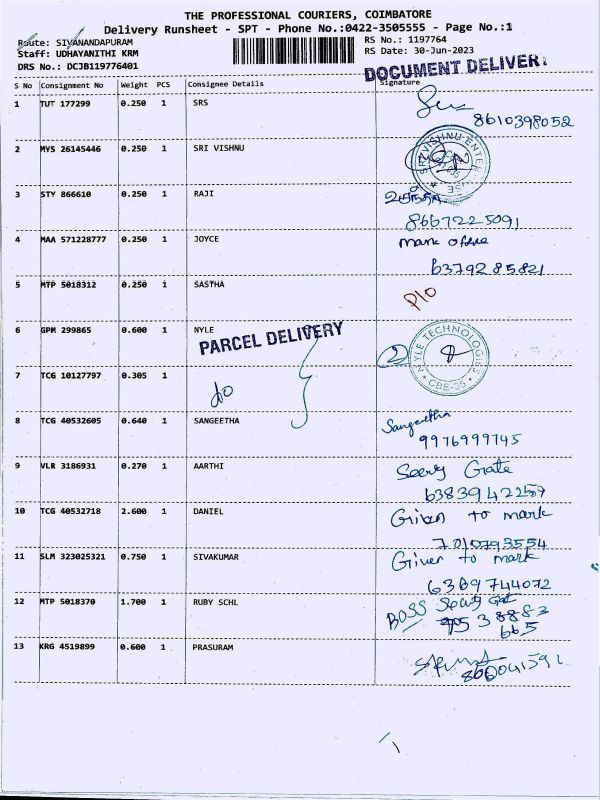 THE PROFESSIONAL COURIERS, COIMBATORE
Delivery Runsheet - SPT - Phone No.:0422-3505555 - Page No.:1
Route: SIVANANDAPURAM
RS No.: 1197764
Staff: UDHAYANITHI KRM
RS Date: 30-Jun-2023
DRS No.: DCJB119776401
DOCUMENT DELIVERY
S No Consignment No Weight PCS Consignee Details Signature
1 TUT 177299 0.250 1 SRS
8610398052
2 MYS 26145446 0.250 1 SRI VISHNU
SRI VISHNU ENTER
3 STY 866610 0.250 1 RAJI
8667225091
4 MAA 571228777 0.250 1 JOYCE mark office
6379285821
5 MTP 5018312 0.250 1 SASTHA
P/o
6 GPM 299865 0.600 1 NYLE
PARCEL DELIVERY
2 NYLE TECHNOLOGIES
CBE-35
7 TCG 10127797 0.305 1
do
8 TCG 40532605 0.640 1 SANGEETHA Sangeetha
9976999745
9 VLR 3186931 0.270 1 AARTHI Gate
6383942259
10 TCG 40532718 2.600 1 DANIEL Given to mark
7010793554
11 SLM 323025321 0.750 1 SIVAKUMAR Given to mark
6389744072
12 MTP 5018370 1.700 1 RUBY SCHL BOSS
38883
665
13 KRG 4519899 0.600 1 PRASURAM